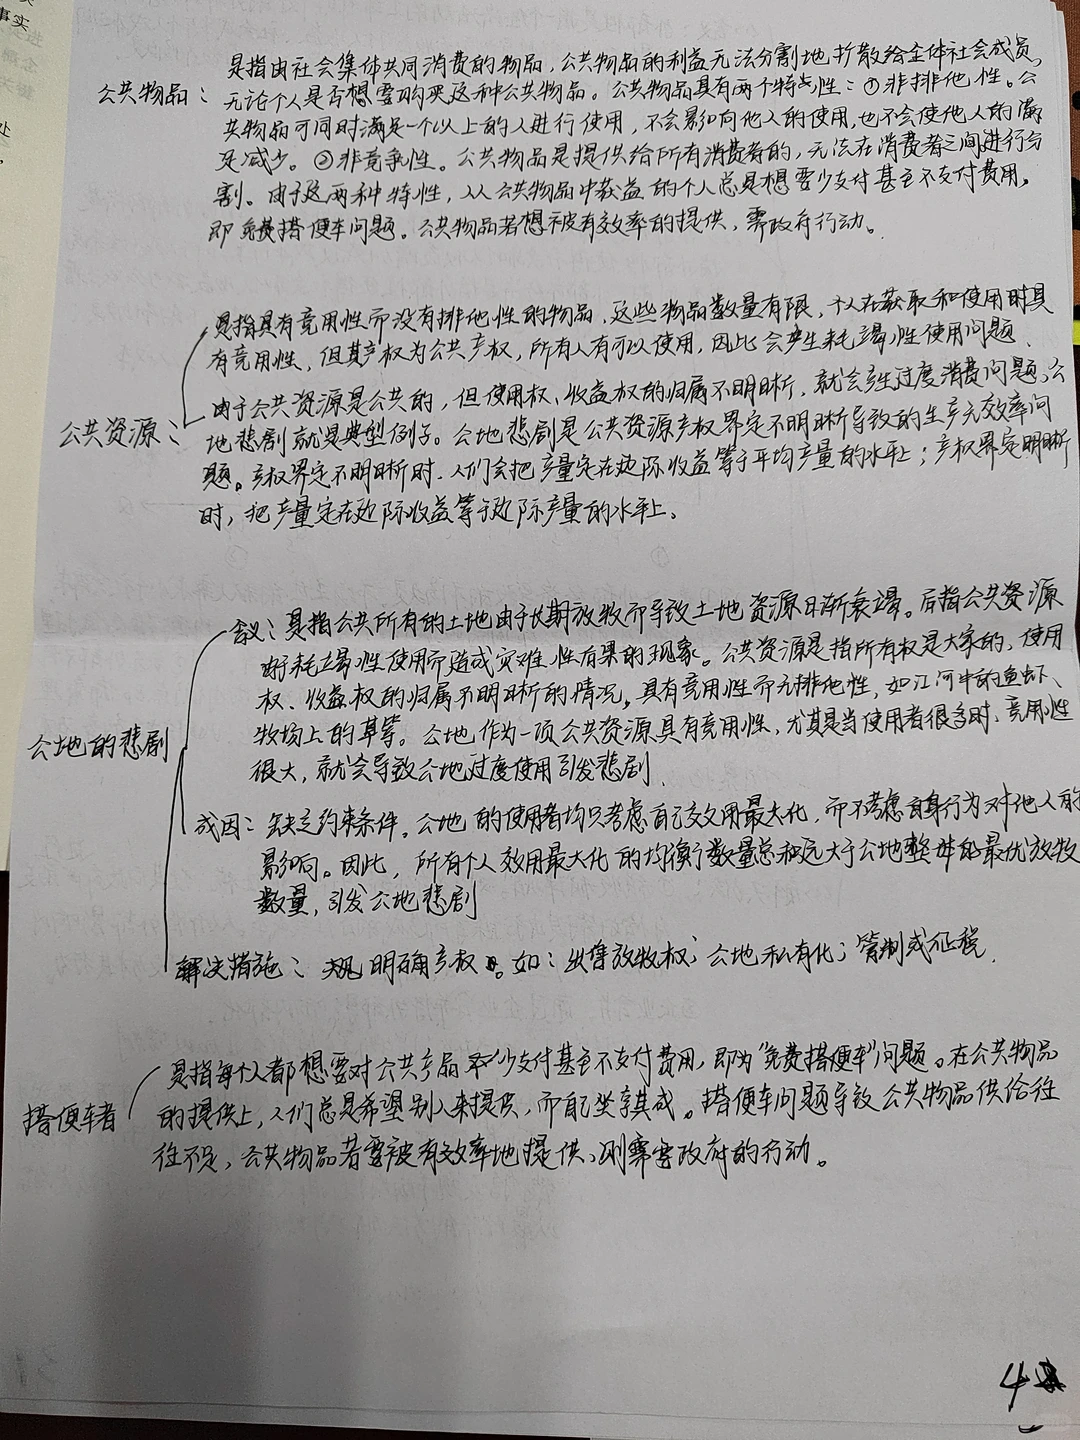 事实
处
是指由社会集体共同消费的物品，公共物品的利益无法分割地扩散给全体社会成员，
公共物品：
无论个人是否想要购买这种公共物品。公共物品具有两个特点性：①非排他性。公
共物品可同时满足一个以上的人进行使用，不会影响他人的使用，也不会使他人的满
足减少。②非竞争性。公共物品是提供给所有消费者的，无法在消费者之间进行分
割。由于这两种特性，从公共物品中获益的个人总是想要少支付甚至不支付费用，
即免费搭便车问题。公共物品若想被有效率的提供，需政府行动。
是指具有竞用性而没有排他性的物品，这些物品数量有限，个人在获取和使用时具
有竞用性，但其产权为公共产权，所有人有可以使用，因此会产生耗竭性使用问题．
公共资源：
由于公共资源是公共的，但使用权、收益权的归属不明晰，就会产生过度消费问题，公
地悲剧就是典型例子。公地悲剧是公共资源产权界定不明晰导致的生产无效率问
题。产权界定不明晰时．人们会把产量定在边际收益等于平均产量的水平上；产权界定明晰
时，把产量定在边际收益等于边际产量的水平上．
公地的悲剧
含义：是指公共所有的土地由于长期放牧而导致土地资源日渐衰竭。后指公共资源
耗竭性使用而造成灾难性后果的现象。公共资源是指所有权是大家的，使用
权、收益权的归属不明晰的情况，具有竞用性而无排他性，如江河中的鱼虾、
牧场上的草等。公地作为一项公共资源具有竞用性，尤其是当使用者很多时、竞用性
很大，就会导致公地过度使用引发悲剧．
成因：缺乏约束条件．公地的使用者均只考虑自己效用最大化，而不考虑自身行为对他人的
影响。因此，所有个人效用最大化的均衡数量总和远大于公地整体的最优放牧
数量，引发公地悲剧
解决措施：明确产权。如：出售放牧权；公地私有化；管制或征税．
搭便车者
是指每个人都想要对公共产品少支付甚至不支付费用，即为“免费搭便车”问题。在公共物品
的提供上，人们总是希望别人来提供，而自己坐享其成。搭便车问题导致公共物品供给往
往不足，公共物品若要被有效率地提供，则需要政府的行动。
4